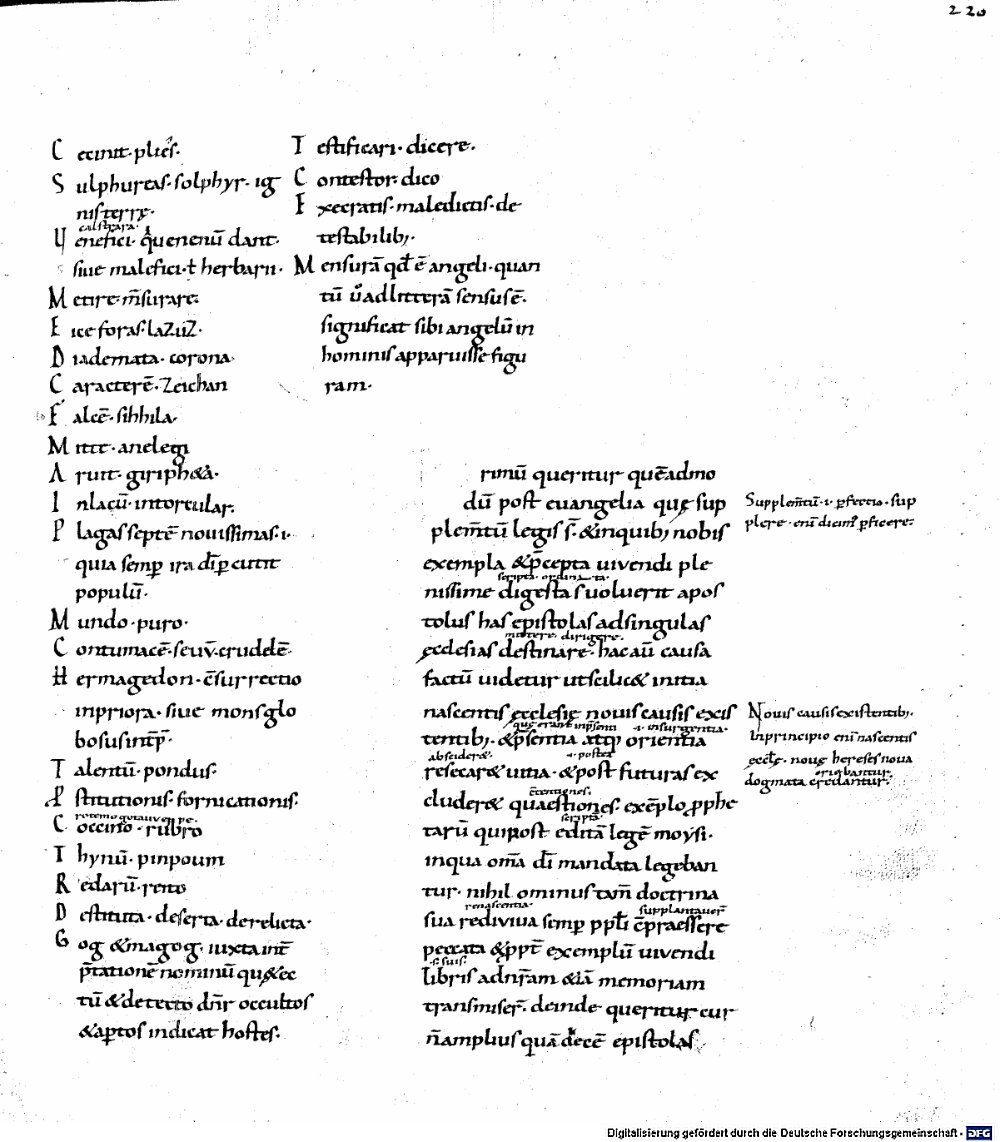 220
Cecinit · plief·
Sulphureas · solphyr · ig
nis terrę·
calstrara·
Uenefici · q̇ uenenū dant·
siue malefici · ł herbarii·
Metire · m̄surare·
Eice foras · lazuz·
Diademata · corona·
Caracterē · zeichan
Falcē · sihhila·
Mitte · anelegi
Aruit · giriph&a·
In lacū · intorcular·
Plagas septē nouissimas · i·
quia semp̱ ira dī p̱cutit
populū·
Mundo · puro·
Contumacē · seuū · crudelē·
Hermagedon · c̄surrectio
in priora · siue mons glo
bosus int̄p̄·
Talentū · pondus·
P̱stitutionis · fornicationis·
Coccino · rubro
Thynū · pinpoum
Redarū · reito
Destituta · deserta · derelicta·
Gog & magog · iuxta int̄
p̄tationē nominū qu&ec
tū & detecto dn̄r occultos
& ap̱tos indicat hostes·
Testificari · dicere·
Contestor · dico
Execratis · maledictis · de
testabilib;·
Mensurā qd̄ ē angeli · quan
tū u̇ ad litterā sensus ē·
significat sibi angelū in
hominis apparuisse figu
ram·
rimū queritur quēadmo
dū post euangelia quę sup
plem̄tū legis s̄· & in quib; nobis
exempla & p̄cepta uiuendi ple
scripta · ordinata·
nissime digesta s̄ uoluerit apos
tolus has epistolas ad singulas
mittere · dirigere·
ęcclesias destinare · hac aū causa
factū uidetur ut scilic& initia
nascentis ęcclesię nouis causis exis
quę erant in p̄senti · i· insurgentia·
tentib;· & p̄sentia atq; orientia
abscider&· · postea
resecar& uitia · & post futuras ex
c̄tentiones·
cluder& quaestiones· exēplo p̱phe
scripta·
tarū qui post editā legē moysi·
in qua om̄a dī mandata legeban
tur· nihil ominus tam̄ doctrina
renascentia· supplantauer̄
sua rediuiua semp̱ ppl̄i c̄praessere
peccata & ppt̄ exemplū uiuendi
· s· suis·
libris ad nr̄am &iā memoriam
transmiser̄· deinde queritur cur
n̄ amplius quā decē epistolas
Supplem̄tū · i· p̱fectio· sup
plere · enī dicim᾽ p̱ficere·
Nouis causis existentib;·
In principio enī nascentis
ęccl̄ę· nouę hereses noua
oriebantur·
dogmata credantur·
Digitalisierung gefördert durch die Deutsche Forschungsgemeinschaft · DFG